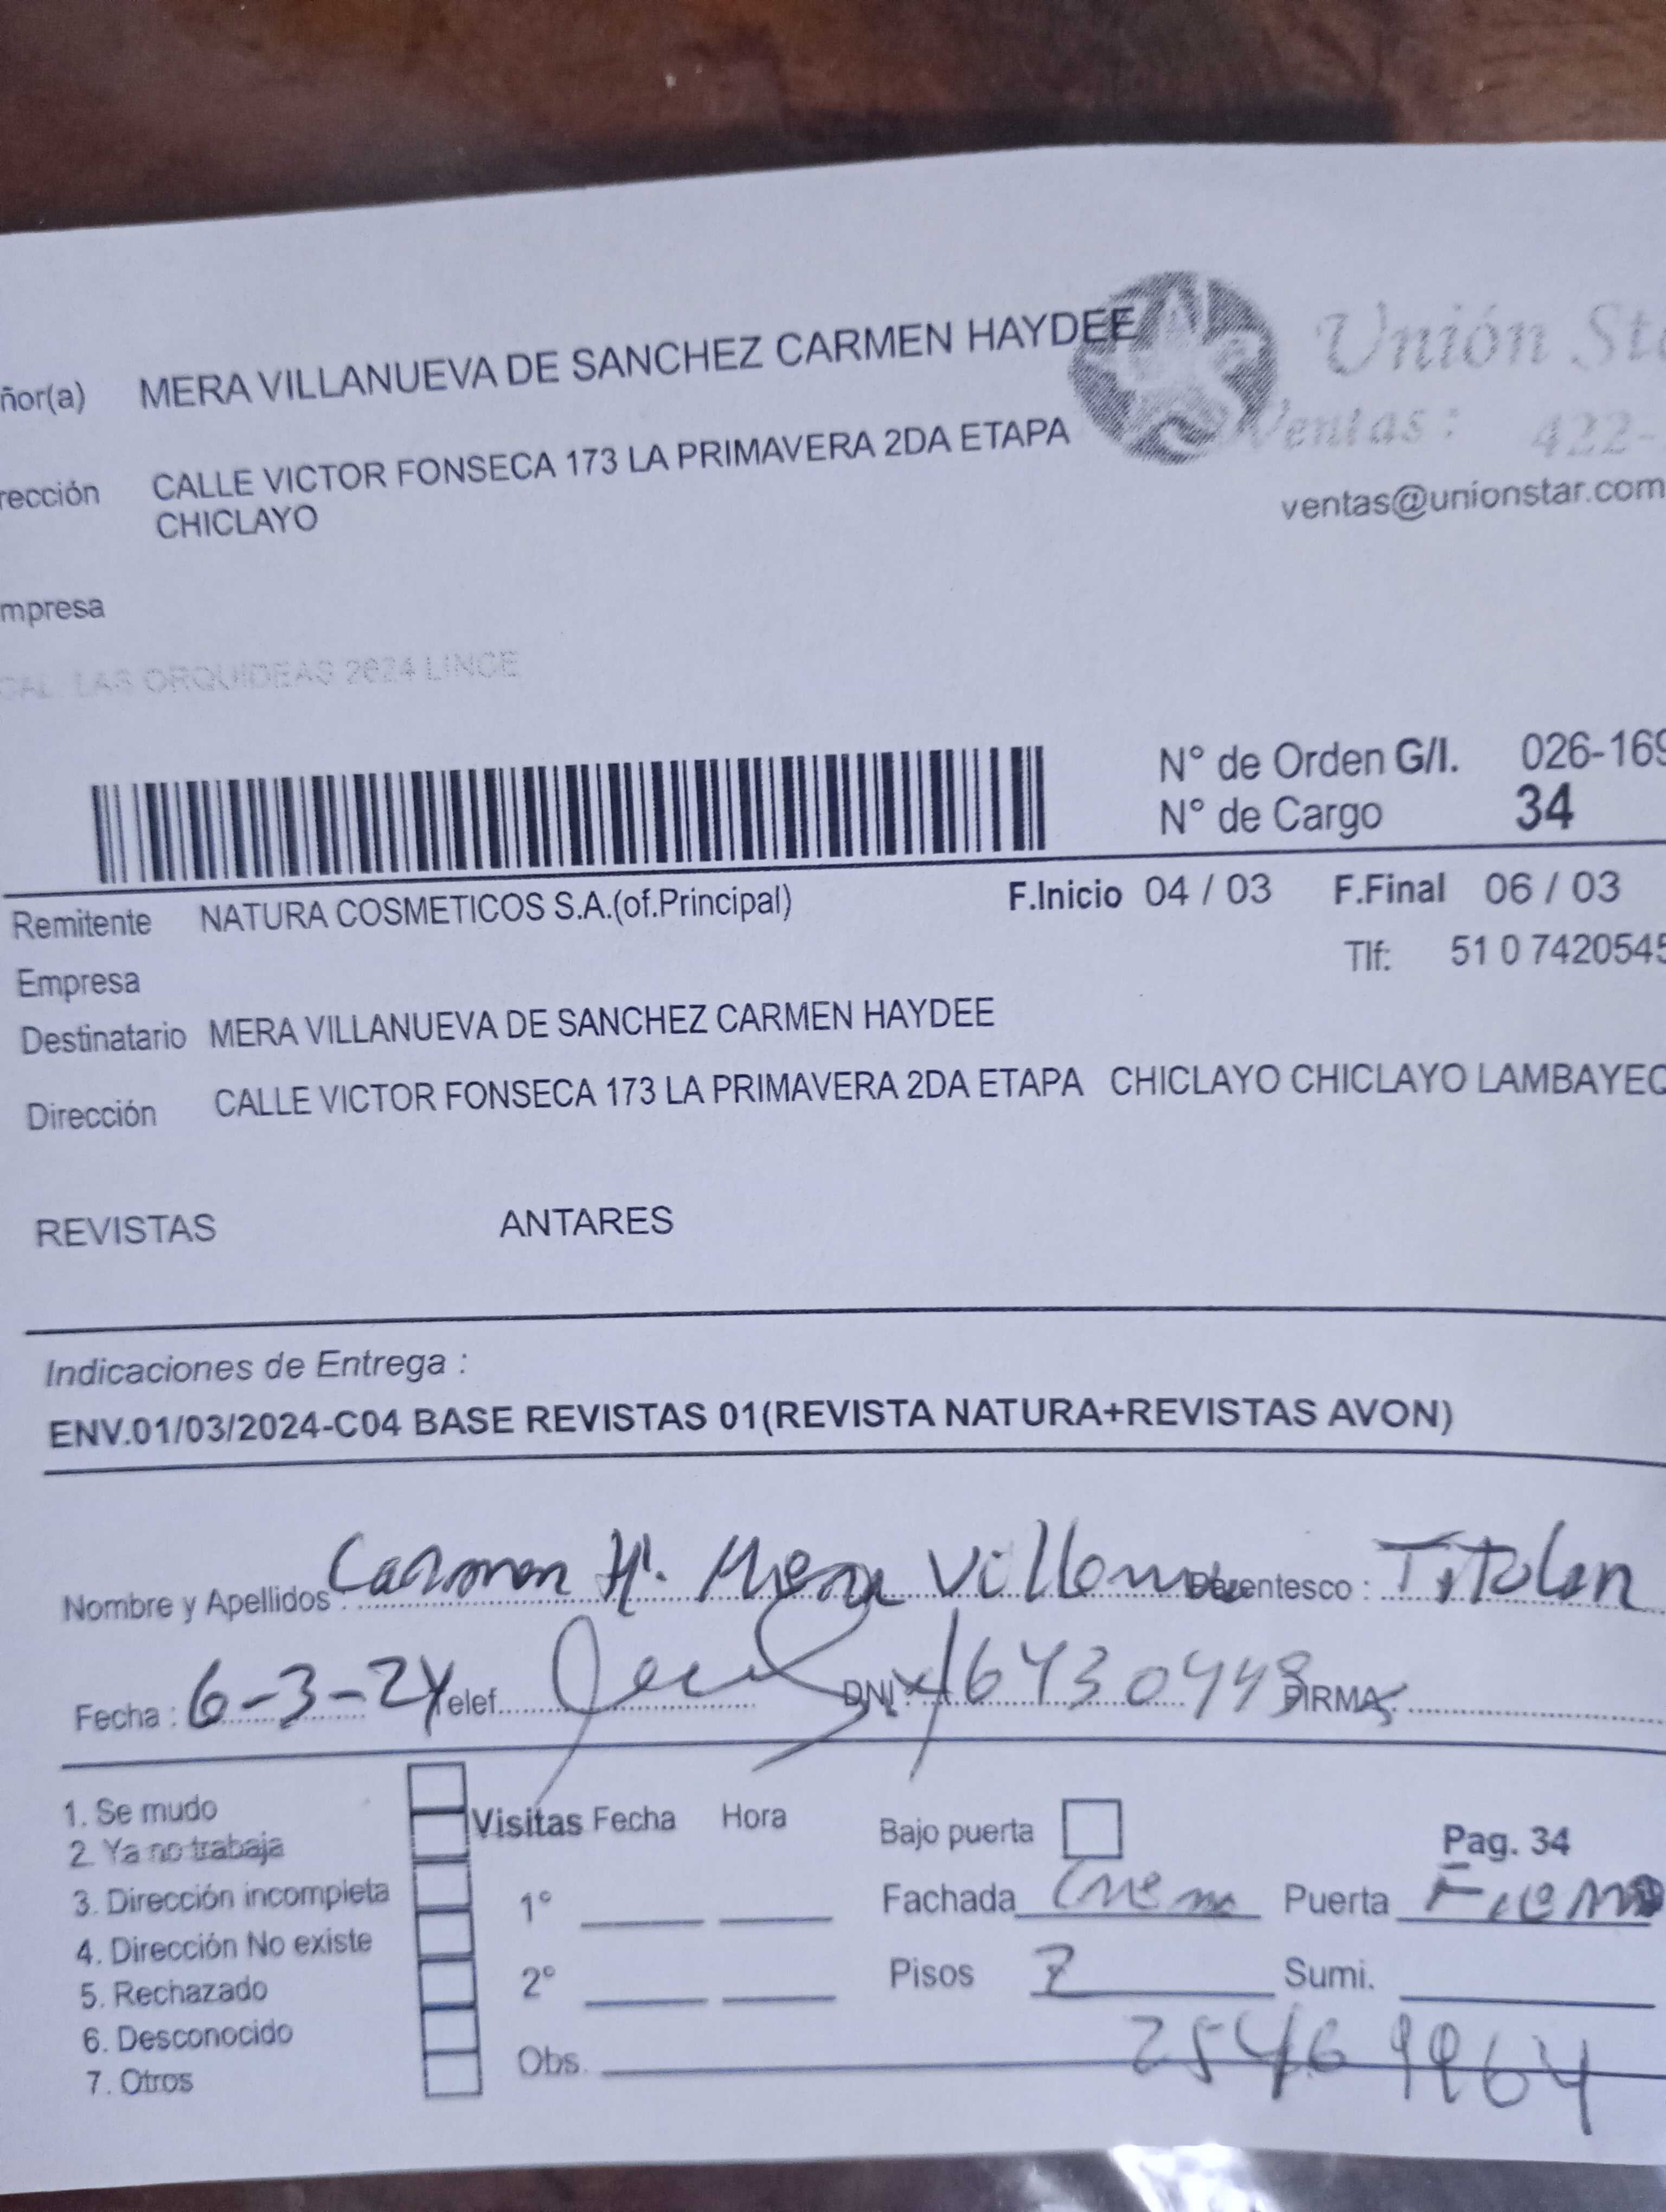 ñor(a) MERA VILLANUEVA DE SANCHEZ CARMEN HAYDEE
Unión Sta
Ventas: 422-
rección CALLE VICTOR FONSECA 173 LA PRIMAVERA 2DA ETAPA
CHICLAYO
ventas@unionstar.com
mpresa
CAL. LAS ORQUIDEAS 2624 LINCE
N° de Orden G/I. 026-169
N° de Cargo 34
Remitente NATURA COSMETICOS S.A.(of.Principal) F.Inicio 04 / 03 F.Final 06 / 03
Empresa Tlf: 51 0 7420545
Destinatario MERA VILLANUEVA DE SANCHEZ CARMEN HAYDEE
Dirección CALLE VICTOR FONSECA 173 LA PRIMAVERA 2DA ETAPA CHICLAYO CHICLAYO LAMBAYEQ
REVISTAS ANTARES
Indicaciones de Entrega :
ENV.01/03/2024-C04 BASE REVISTAS 01(REVISTA NATURA+REVISTAS AVON)
Nombre y Apellidos : Carmen H. Mera Parentesco :
Fecha : 6-3-24 Telef. DNI 16430448 FIRMA
1. Se mudo
2. Ya no trabaja
3. Dirección incompleta
4. Dirección No existe
5. Rechazado
6. Desconocido
7. Otros
Visitas Fecha Hora
1°
2°
Obs.
Bajo puerta
Pag. 34
Fachada Crema Puerta
Pisos Sumi.
25469964